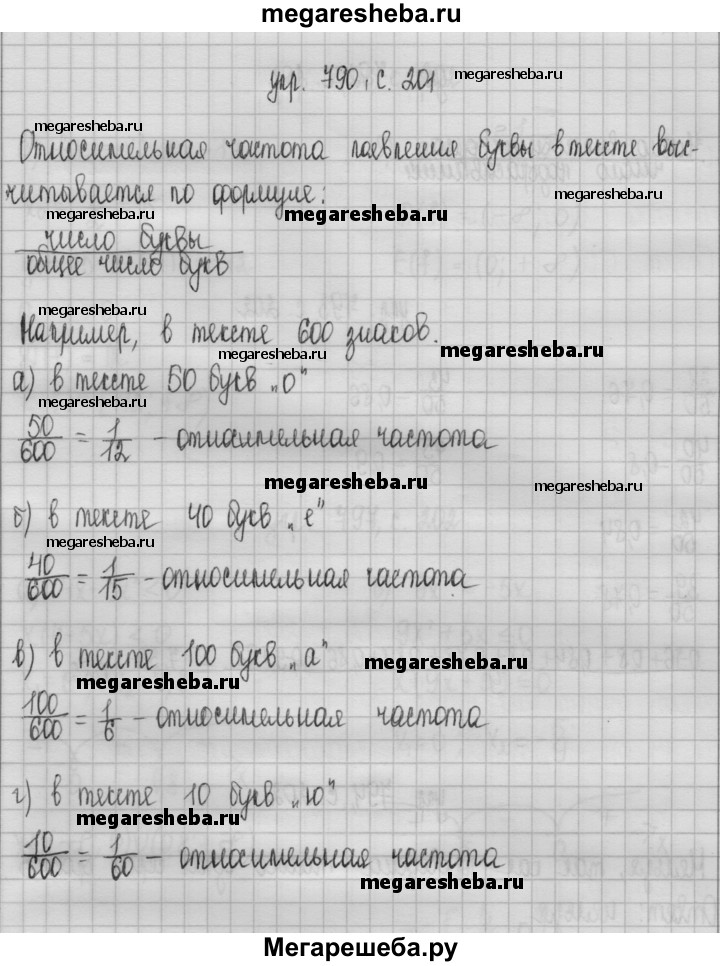 megaresheba.ru
упр. 790, с. 201 megaresheba.ru
megaresheba.ru
Относительная частота появления буквы в тексте выс-
читывается по формуле:
megaresheba.ru megaresheba.ru
число буквы
общее число букв
megaresheba.ru
Например, в тексте 600 знаков.
megaresheba.ru megaresheba.ru
а) в тексте 50 букв „о“
megaresheba.ru
50/600 = 1/12 - относительная частота
megaresheba.ru megaresheba.ru
б) в тексте 40 букв „е“
megaresheba.ru
40/600 = 1/15 - относительная частота
в) в тексте 100 букв „а“ megaresheba.ru
megaresheba.ru
100/600 = 1/6 - относительная частота
г) в тексте 10 букв „ю“
megaresheba.ru
10/600 = 1/60 - относительная частота
megaresheba.ru
Мегарешеба.ру